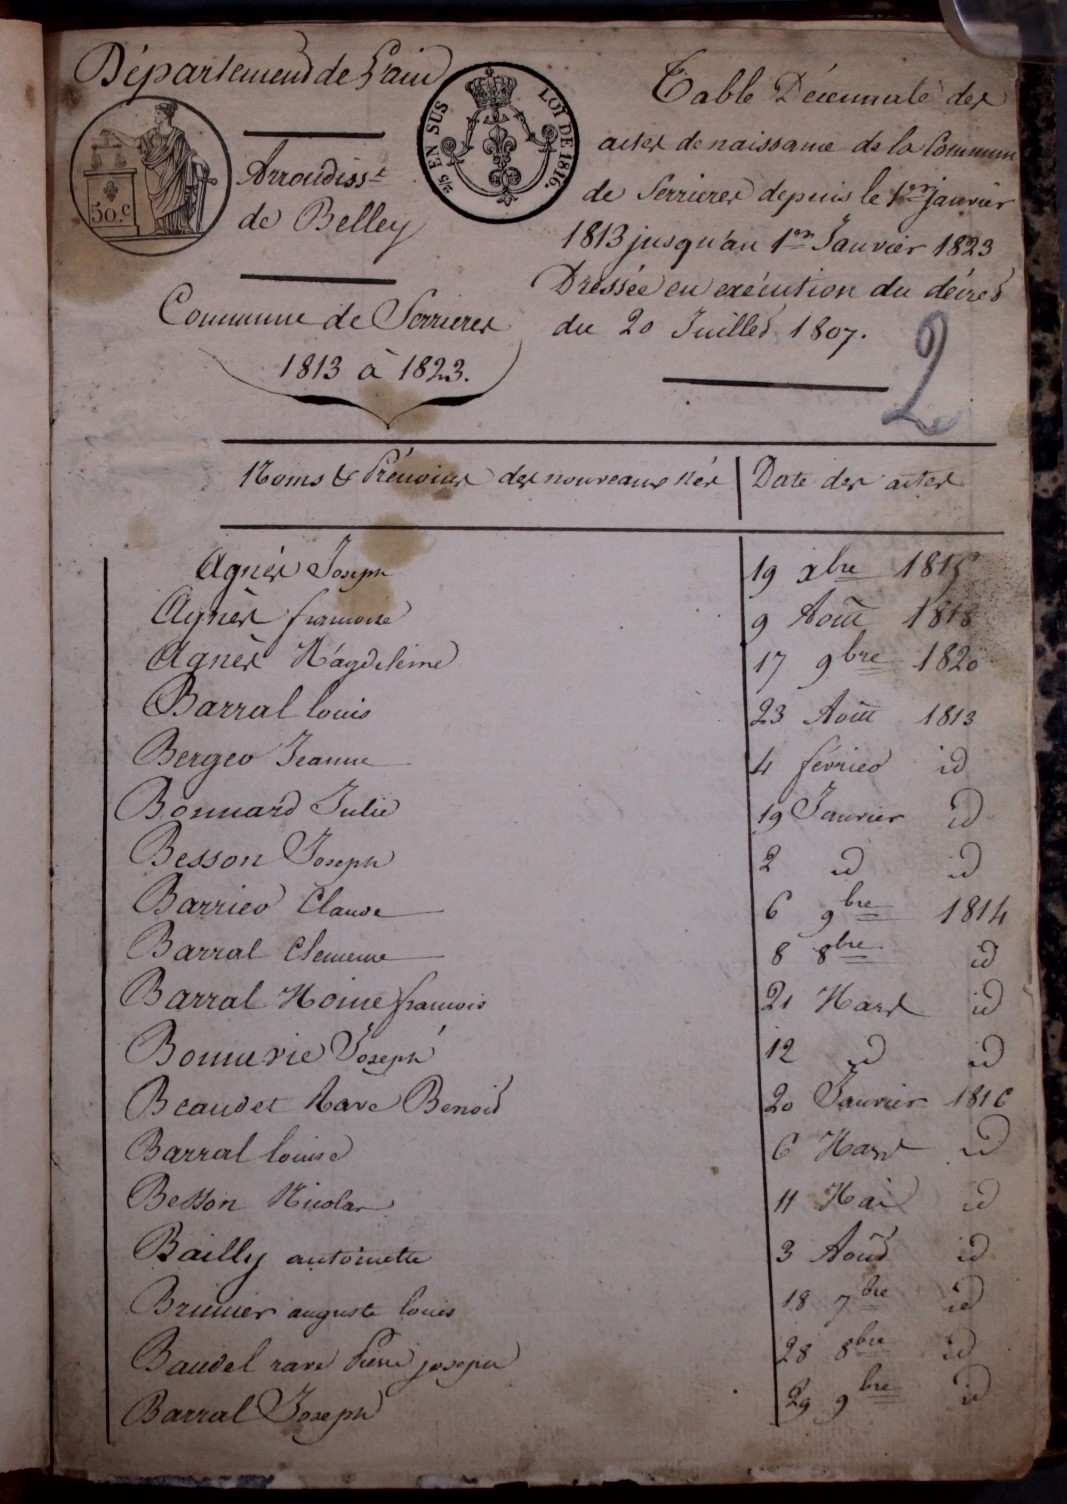 Département de l'ain
50.c
2/5 EN SUS
LOI DE 1816.
Arroudisst
de Belley
Commune de Serrieres
1813 à 1823.
Table Décennale des
actes de naissance de la Commune
de Serrieres depuis le 1er janvier
1813 jusqu'au 1er Janvier 1823
Dressée en exécution du décret
du 20 Juillet 1807.
2
Noms & Prénoms des nouveaux nés | Date des actes
Agnès Joseph 19 xbre 1815
Agnès francoise 9 Août 1818
Agnès Magdeleine 17 9bre 1820
Barral louis 23 Août 1813
Berger Jeanne 4 février id
Bonnard Julie 19 Janvier id
Besson Joseph 2 id id
Barrier Claude 6 9bre 1814
Barral Clemence 8 8bre id
Barral Moine francois 21 Mars id
Bonnerie Joseph 12 id id
Beaudet Rave Benoit 20 Janvier 1816
Barral louise 6 Mars id
Besson Nicolas 11 Mai id
Bailly antoinette 3 Août id
Brunier auguste louis 18 7bre id
Baudet rave Pierre joseph 28 8bre id
Barral Joseph 29 9bre id